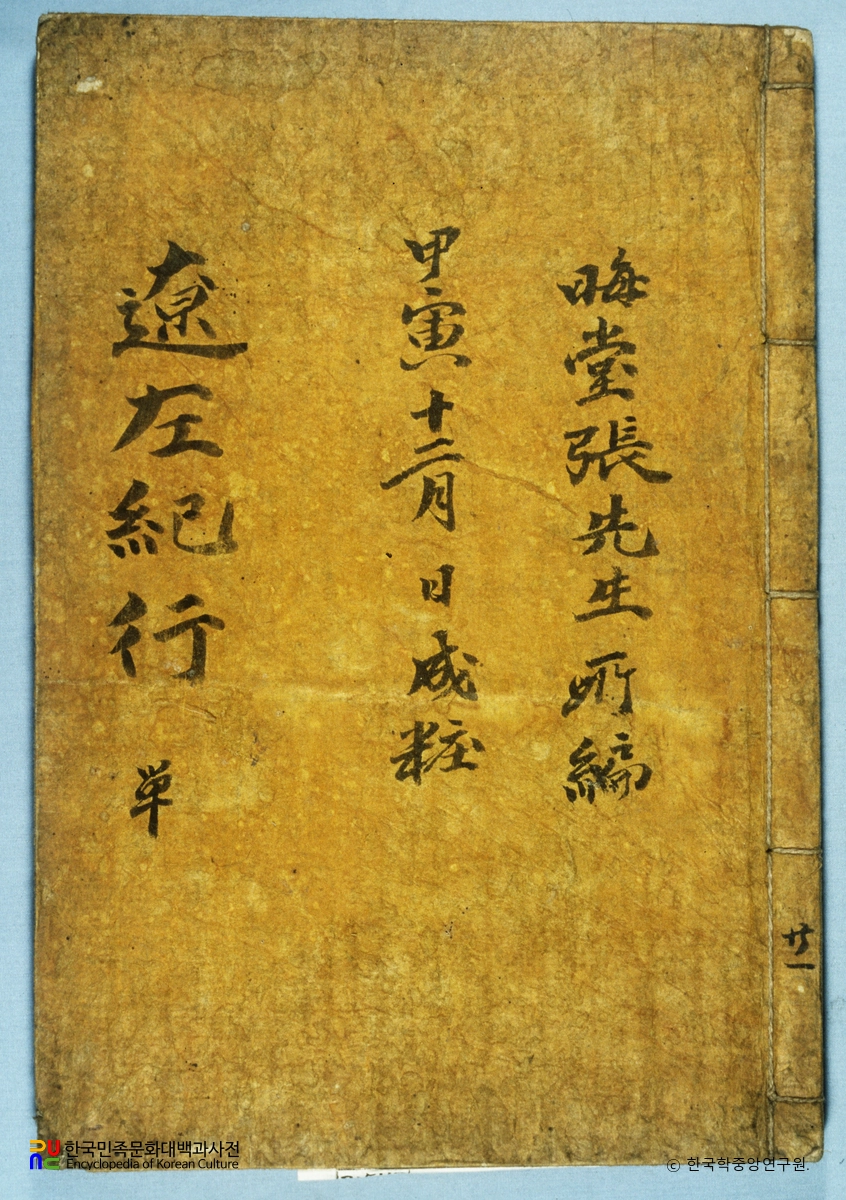 晦堂張先生所編
甲寅十二月 日成粧
遼左紀行 単
廿一
한국민족문화대백과사전
Encyclopedia of Korean Culture
© 한국학중앙연구원.